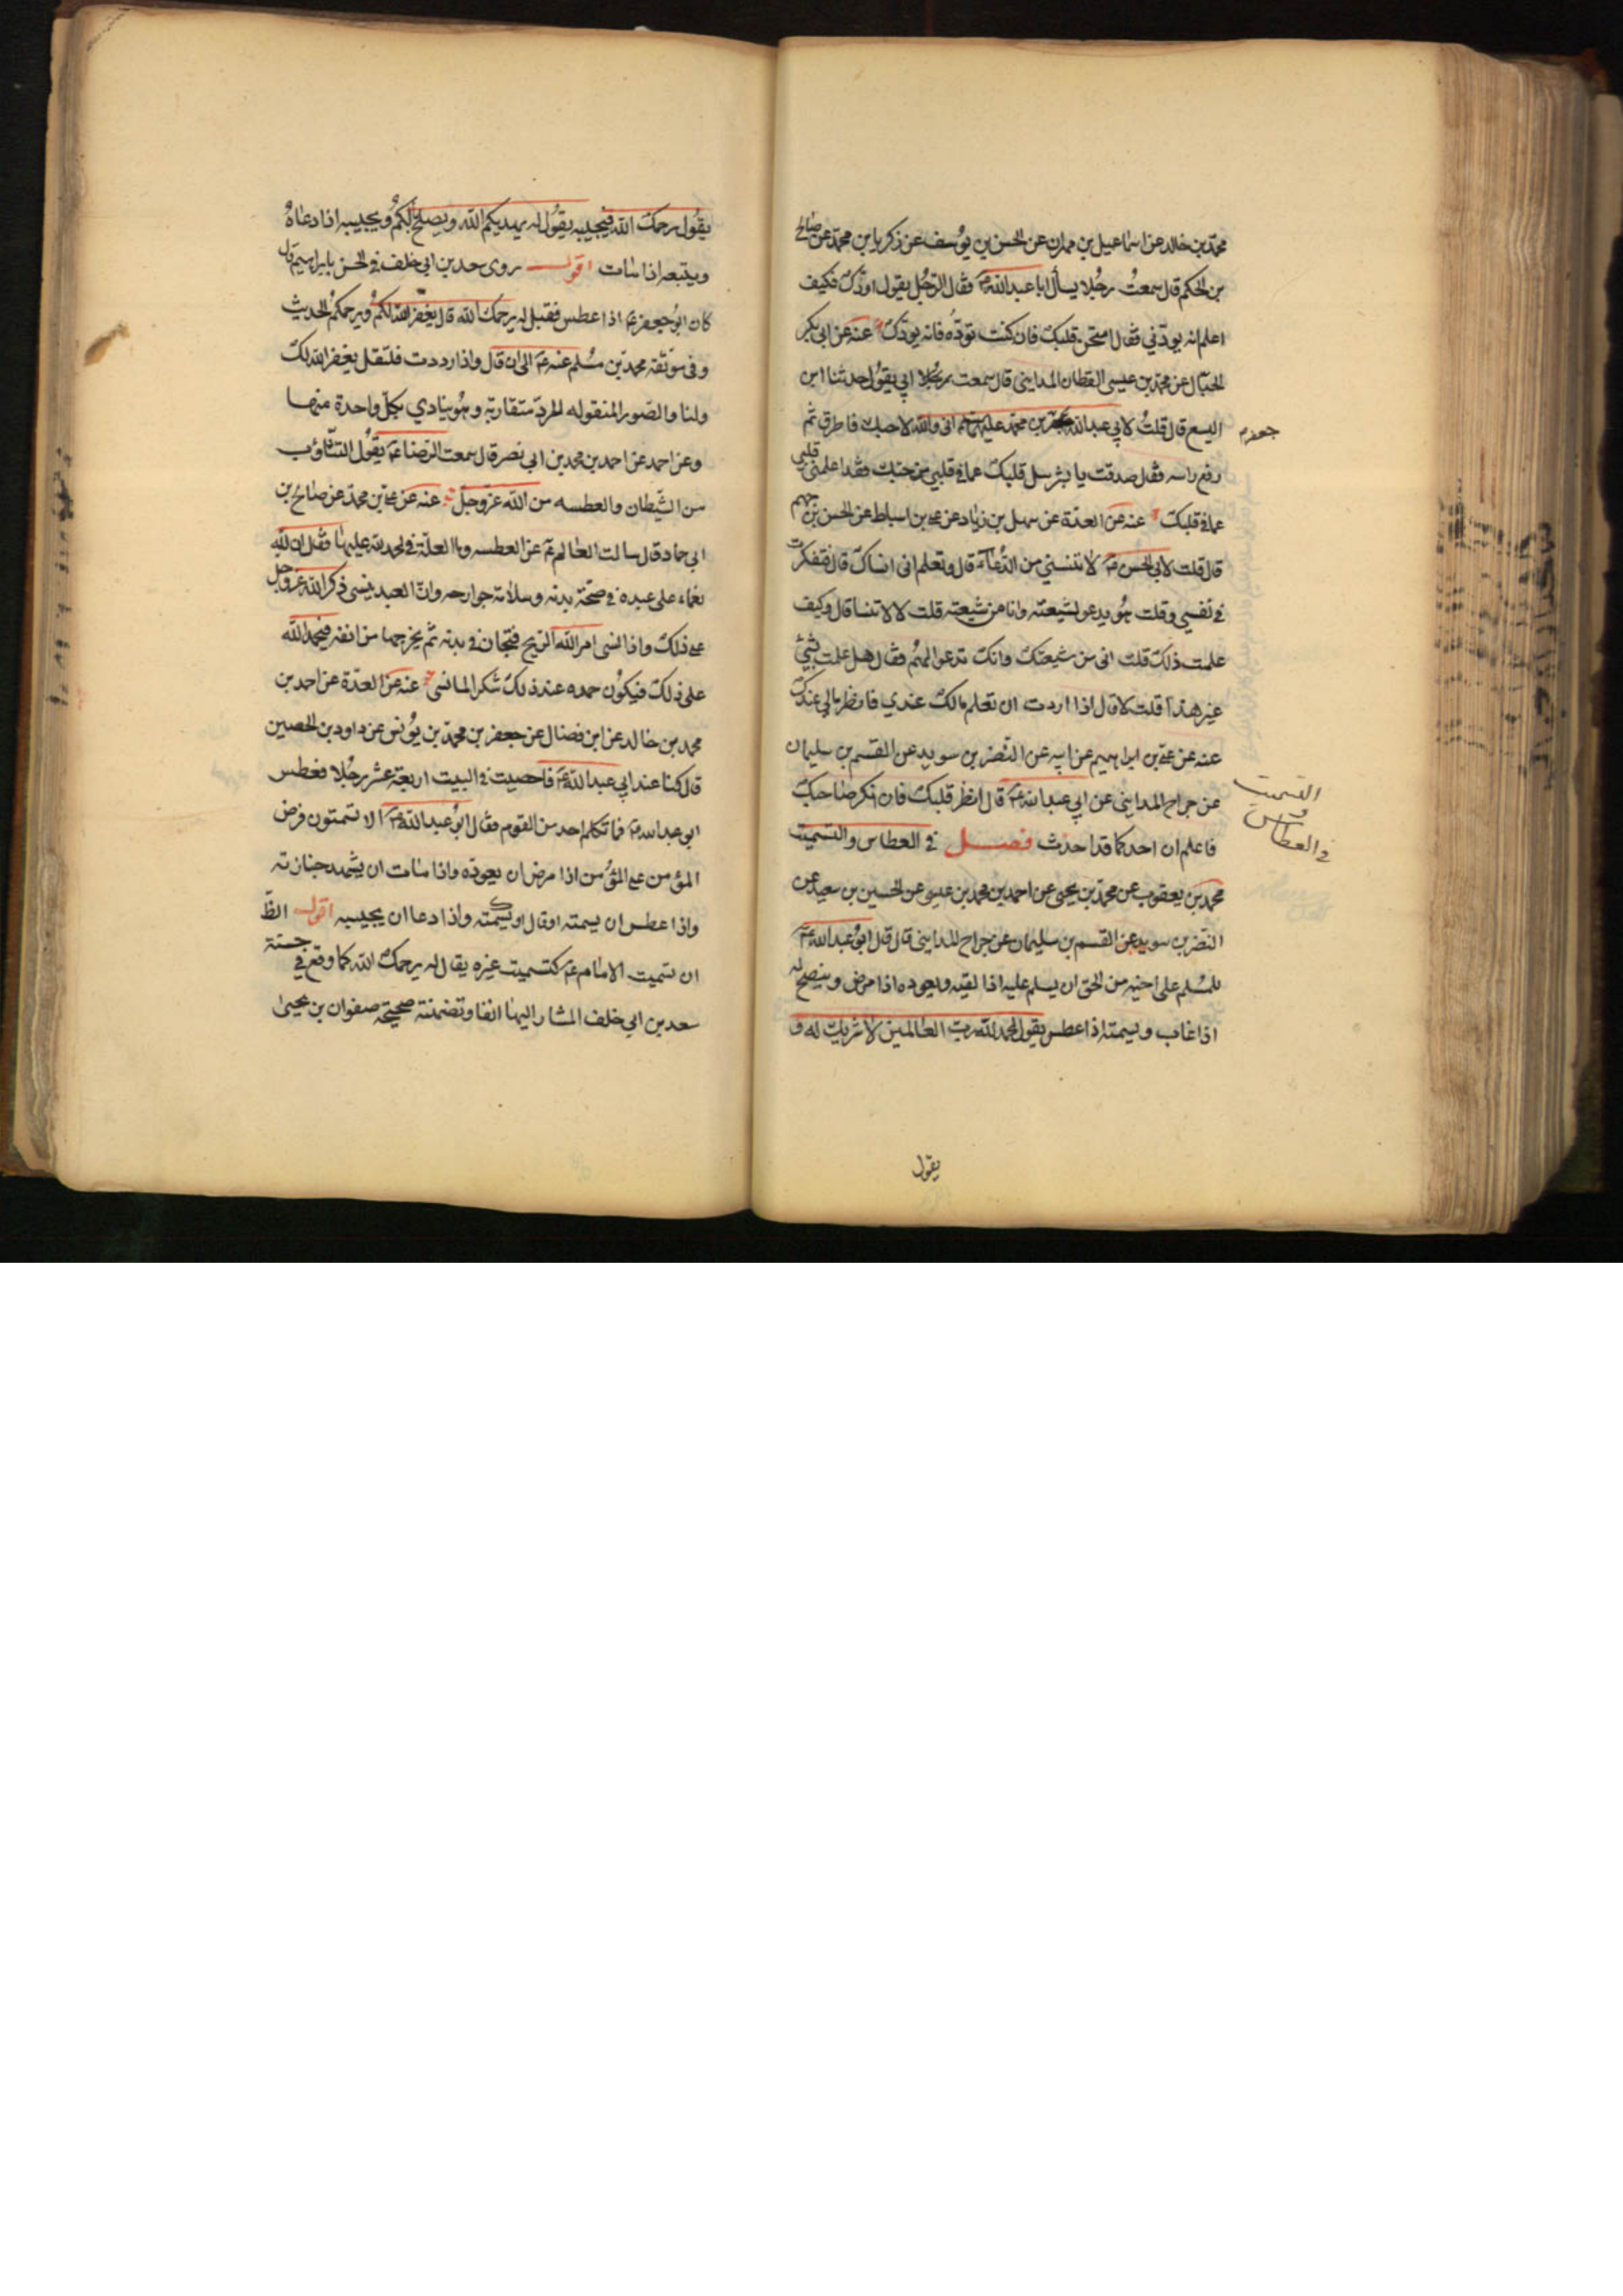 محمد بن خالد عن اسماعيل بن مهران عن الحسن بن يوسف عن زكريا بن محمد عن صالح
بن الحكم قال سمعت رجلا يسأل ابا عبد الله ع فقال الرجل يقول اودك فكيف
اعلم انه يودني فقال امتحن قلبك فان كنت تودّه فانه يودك عنه عن ابي بكر
الحبال عن محمد بن عيسى القطان المدايني قال سمعت ابي يقول حدثنا ابن
اليسع قال قلت لابي عبد الله جعفر بن محمد عليه اني والله لاحبك فاطرق ثم
جعفر
رفع راسه فقال صدقت يا بشر سل قلبك عما في قلبي من حبك فقد اعلمني قلبي
عما في قلبك عنه عن العدّة عن سهل بن زياد عن علي بن اسباط عن الحسن بن جهم
قال قلت لابي الحسن ع لا تنسني من الدّعاء قال وتعلم اني انساك قال فتفكرت
في نفسي وقلت هو يدعو لشيعته وانا من شيعته قلت لا لا تنسا قال وكيف
علمت ذلك قلت اني من شيعتك وانك تدعو لهم فقال هل علمت بشيئ
غير هذا قلت لا قال اذا اردت ان تعلم مالك عندي فانظر مالي عندك
عنه عن علي بن ابراهيم عن ابيه عن النضر بن سويد عن القسم بن سليمان
عن جراح المدايني عن ابي عبد الله ع قال انظر قلبك فان انكر صاحبك
التسميت
و
في العطاس
فاعلم ان احدكما قد احدث فصل في العطاس والتسميت
محمد بن يعقوب عن محمد بن يحيى عن احمد بن محمد بن عيسى عن الحسين بن سعيد عن
النضر بن سويد عن القسم بن سليمان عن جراح المدايني قال قال ابو عبد الله ع
للمسلم على اخيه من الحق ان يسلم عليه اذا لقيه ويعوده اذا مرض وينصح له
اذا غاب ويسمته اذا عطس يقول الحمد لله رب العالمين لا شريك له و
يقول
يقول يرحمك الله فيجيبه يقول له يهديكم الله ويصلح بالكم ويجيبه اذا دعاه
ويتبعه اذا مات اقول روى سعد بن ابي خلف في الحسن بابراهيم قال
كان ابو جعفر ع اذا عطس فقيل له يرحمك الله قال يغفر الله لكم ويرحمكم الحديث
وفي موثقة محمد بن مسلم عنه ع الى ان قال واذا رددت فلتقل يغفر الله لك
ولنا والصور المنقوله للرد متقاربة وهو ينادي بكل واحدة منها
وعن احمد عن احمد بن محمد بن ابي نصر قال سمعت الرضا ع يقول التثاؤب
من الشيطان والعطسه من الله عز وجل عنه عن علي بن محمد عن صالح بن
ابي حماد قال سالت العالم ع عن العطسه وما العلة في الحمد لله عليها فقال ان لله
نعماء على عبده في صحة بدنه وسلامة جوارحه وان العبد ينسى ذكر الله عز وجل
على ذلك واذا نسى امر الله الريح فتجان في بدنه ثم يخرجها من انفه فيحمد الله
على ذلك فيكون حمده عند ذلك شكر الما نسي عنه عن العدّة عن احمد بن
محمد بن خالد عن ابن فضال عن جعفر بن محمد بن يونس عن داود بن الحصين
قال كنا عند ابي عبد الله ع فاحصيت في البيت اربعة عشر رجلا فعطس
ابو عبد الله ع فما تكلم احد من القوم فقال ابو عبد الله ع الا تسمتون فرض
المؤمن على المؤمن اذا مرض ان يعوده واذا مات ان يشهد جنازته
واذا عطس ان يسمته او قال او يشمته واذا دعا ان يجيبه اقول الظ
ان تسميت الامام ع كتسميت غيره يقال له يرحمك الله كما وقع في حسنة
سعد بن ابي خلف المشار اليها انفا وتضمنته صحيحة صفوان بن يحيى